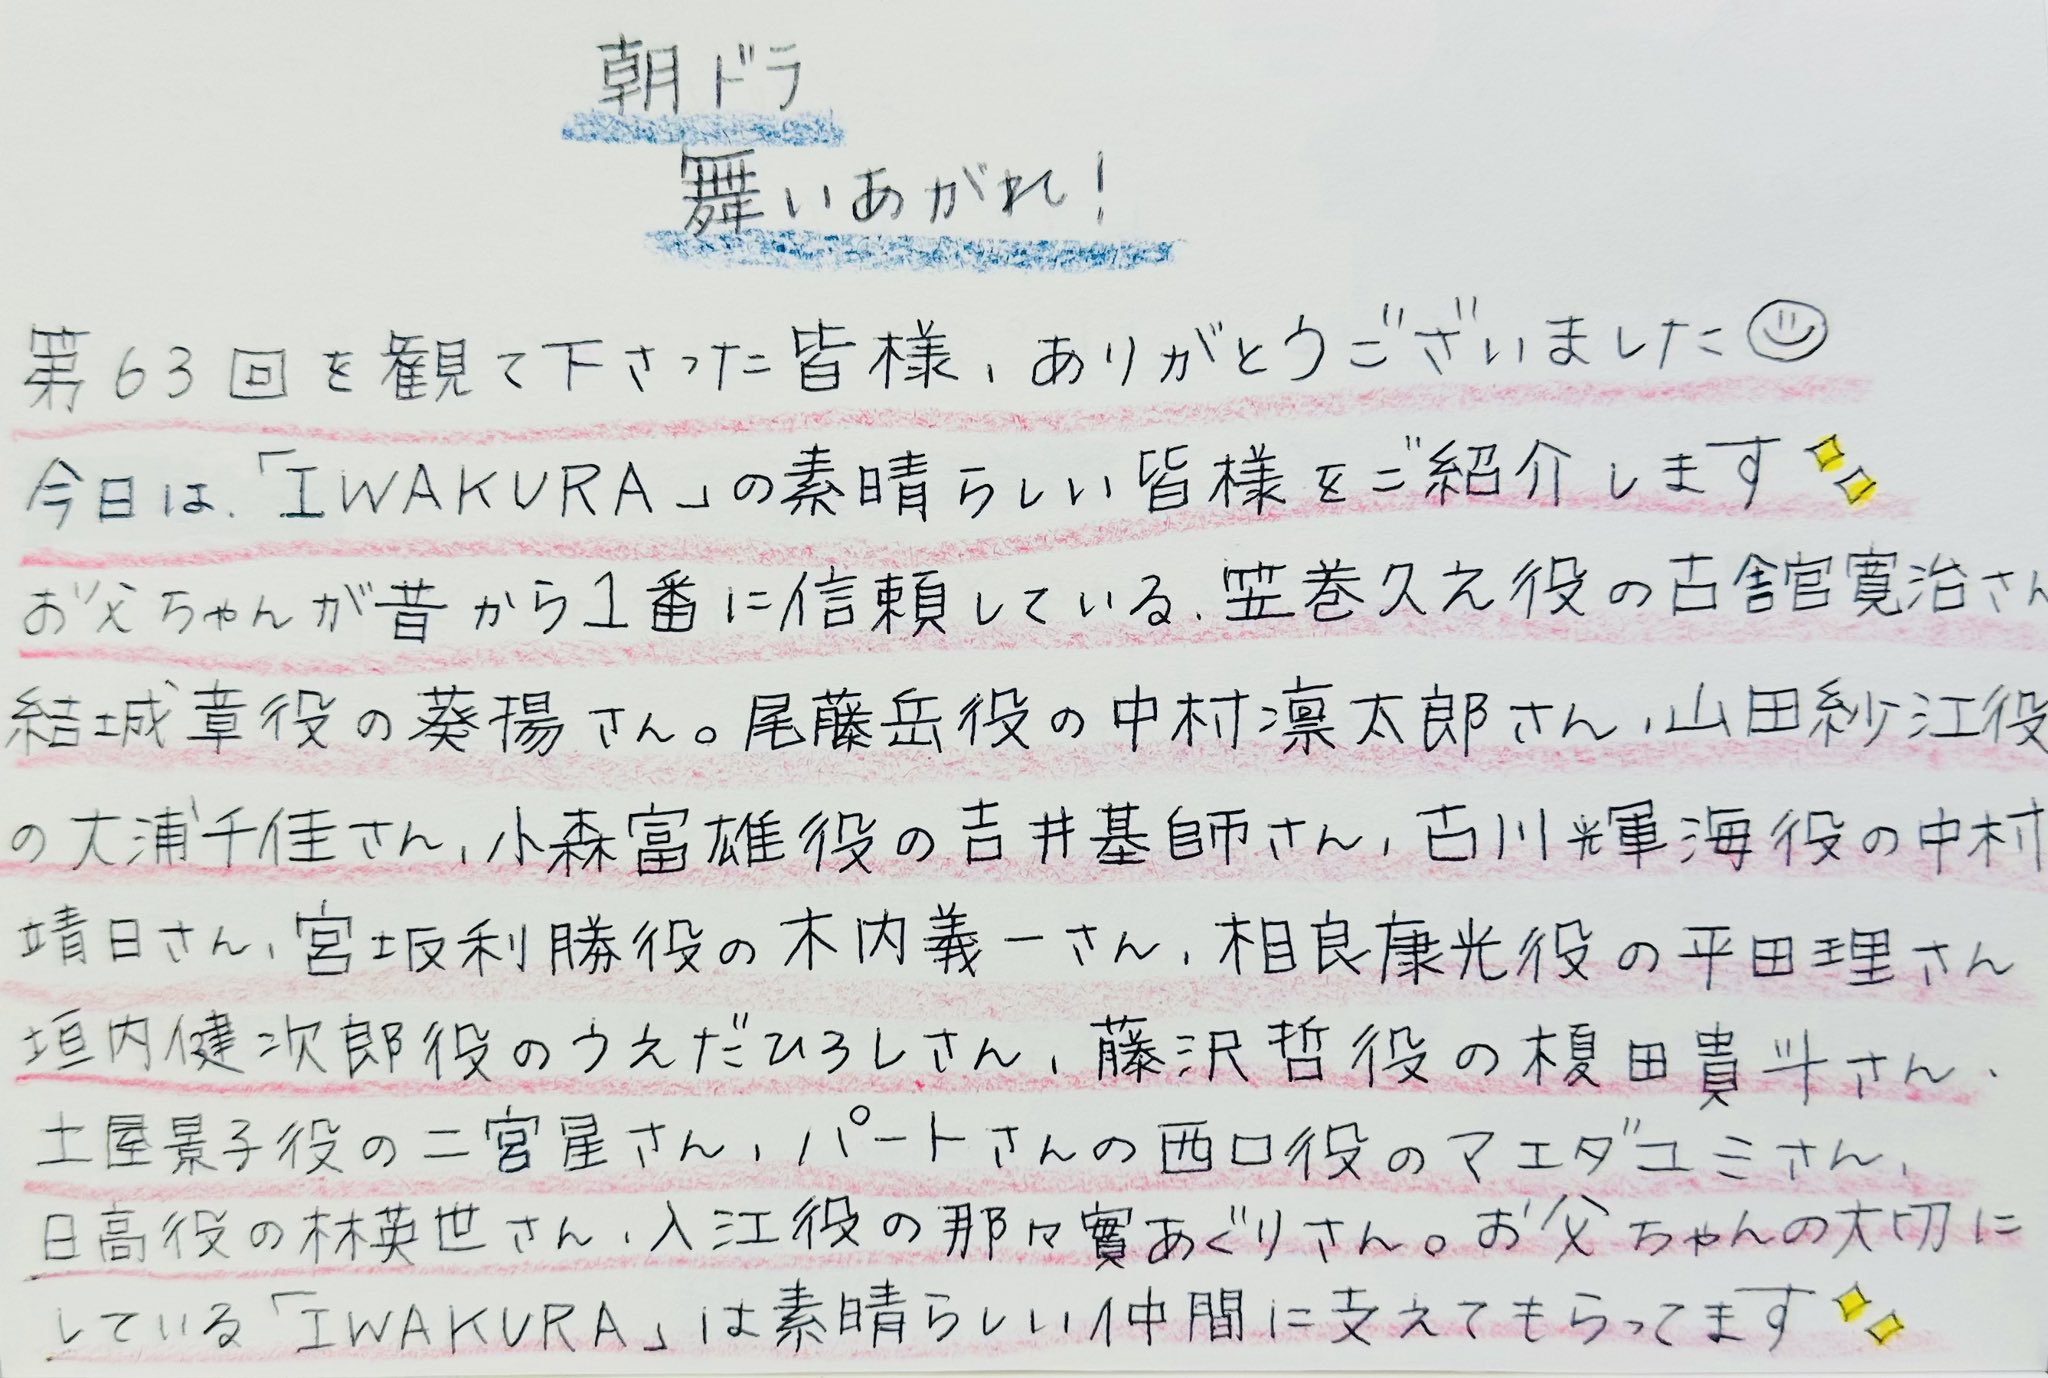 朝ドラ
舞いあがれ!
第63回を観て下さった皆様、ありがとうございました
今日は、「IWAKURA」の素晴らしい皆様をご紹介します
お父ちゃんが昔から1番に信頼している、笠巻久之役の古舘寛治さん
結城章役の葵揚さん。尾藤岳役の中村凛太郎さん、山田紗江役
の大浦千佳さん、小森富雄役の吉井基師さん、古川輝海役の中村
靖日さん、宮坂利勝役の木内義一さん、相良康光役の平田理さん
垣内健次郎役のうえだひろしさん、藤沢哲役の榎田貴斗さん、
土屋景子役の二宮星さん、パートさんの西口役のマエダユミさん、
日高役の林英世さん、入江役の那々實あぐりさん。お父ちゃんの大切に
している「IWAKURA」は素晴らしい仲間に支えてもらってます